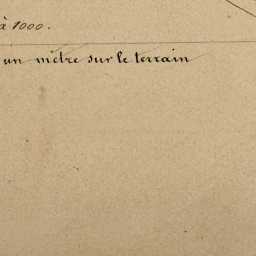 à 1000.
un mètre sur le terrain